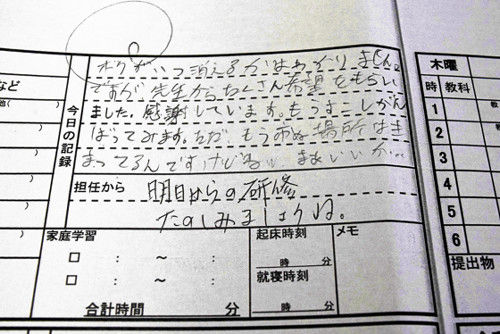 など
今日の記録
ボクがいつ消えるかはわかりません。
ですが、先生からたくさん希望をもらい
ました。感謝しています。もうすこしがん
ばってみます。ただ、もう市ぬ場所はき
まってるんですけどね。まぁいいか…
担任から
明日からの研修
たのしみましょうね。
家庭学習
□ : ～ :
□ : ～ :
合計時間 分
起床時刻
時 分
就寝時刻
時 分
メモ
木曜
時 教科
1
2
3
4
5
6
提出物